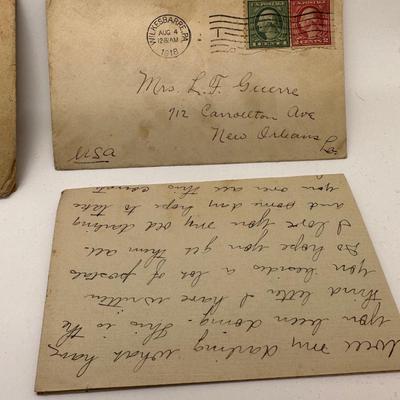 WILKESBARRE, PA.
AUG 4
12:30 AM
1918
1 CENT 1
2 CENTS 2
Mrs. L. F. Guerre
912 Carrollton Ave
New Orleans
La
USA
Well my darling what have
you been doing. This is the
third letter I have written
you besides a lot of postals
So hope you get them all.
I love you my old darling
and some day hope to take
you over all this